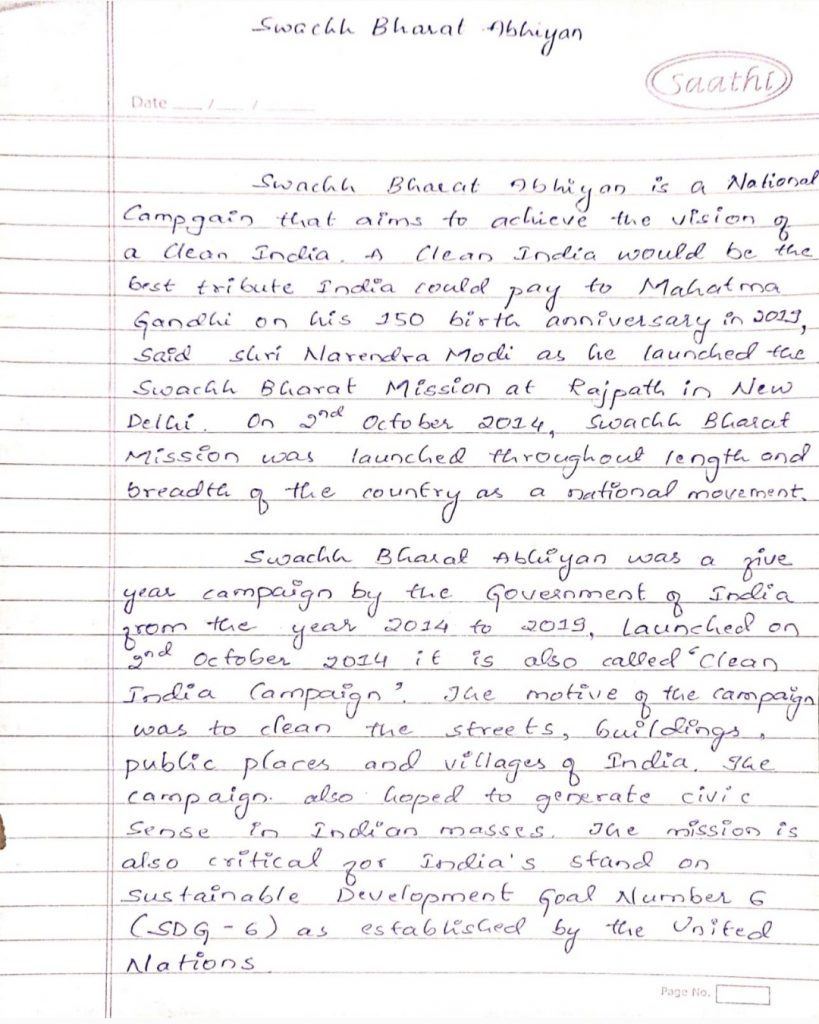 Swachh Bharat Abhiyan
saathi
Date ___ / ___ / ______
Swachh Bharat Abhiyan is a National
Campgain that aims to achieve the vision of
a clean India. A Clean India would be the
best tribute India could pay to Mahatma
Gandhi on his 150 birth anniversary in 2019,
said shri Narendra Modi as he launched the
Swachh Bharat Mission at Rajpath in New
Delhi. On 2nd October 2014, Swachh Bharat
Mission was launched throughout length and
breadth of the country as a national movement.
Swachh Bharat Abhiyan was a five
year campaign by the Government of India
from the year 2014 to 2019, launched on
2nd October 2014 it is also called 'Clean
India Campaign'. The motive of the campaign
was to clean the streets, buildings,
public places and villages of India. The
campaign. also hoped to generate civic
sense in Indian masses. The mission is
also critical for India's stand on
Sustainable Development Goal Number 6
(SDG - 6) as established by the United
Nations
Page No.